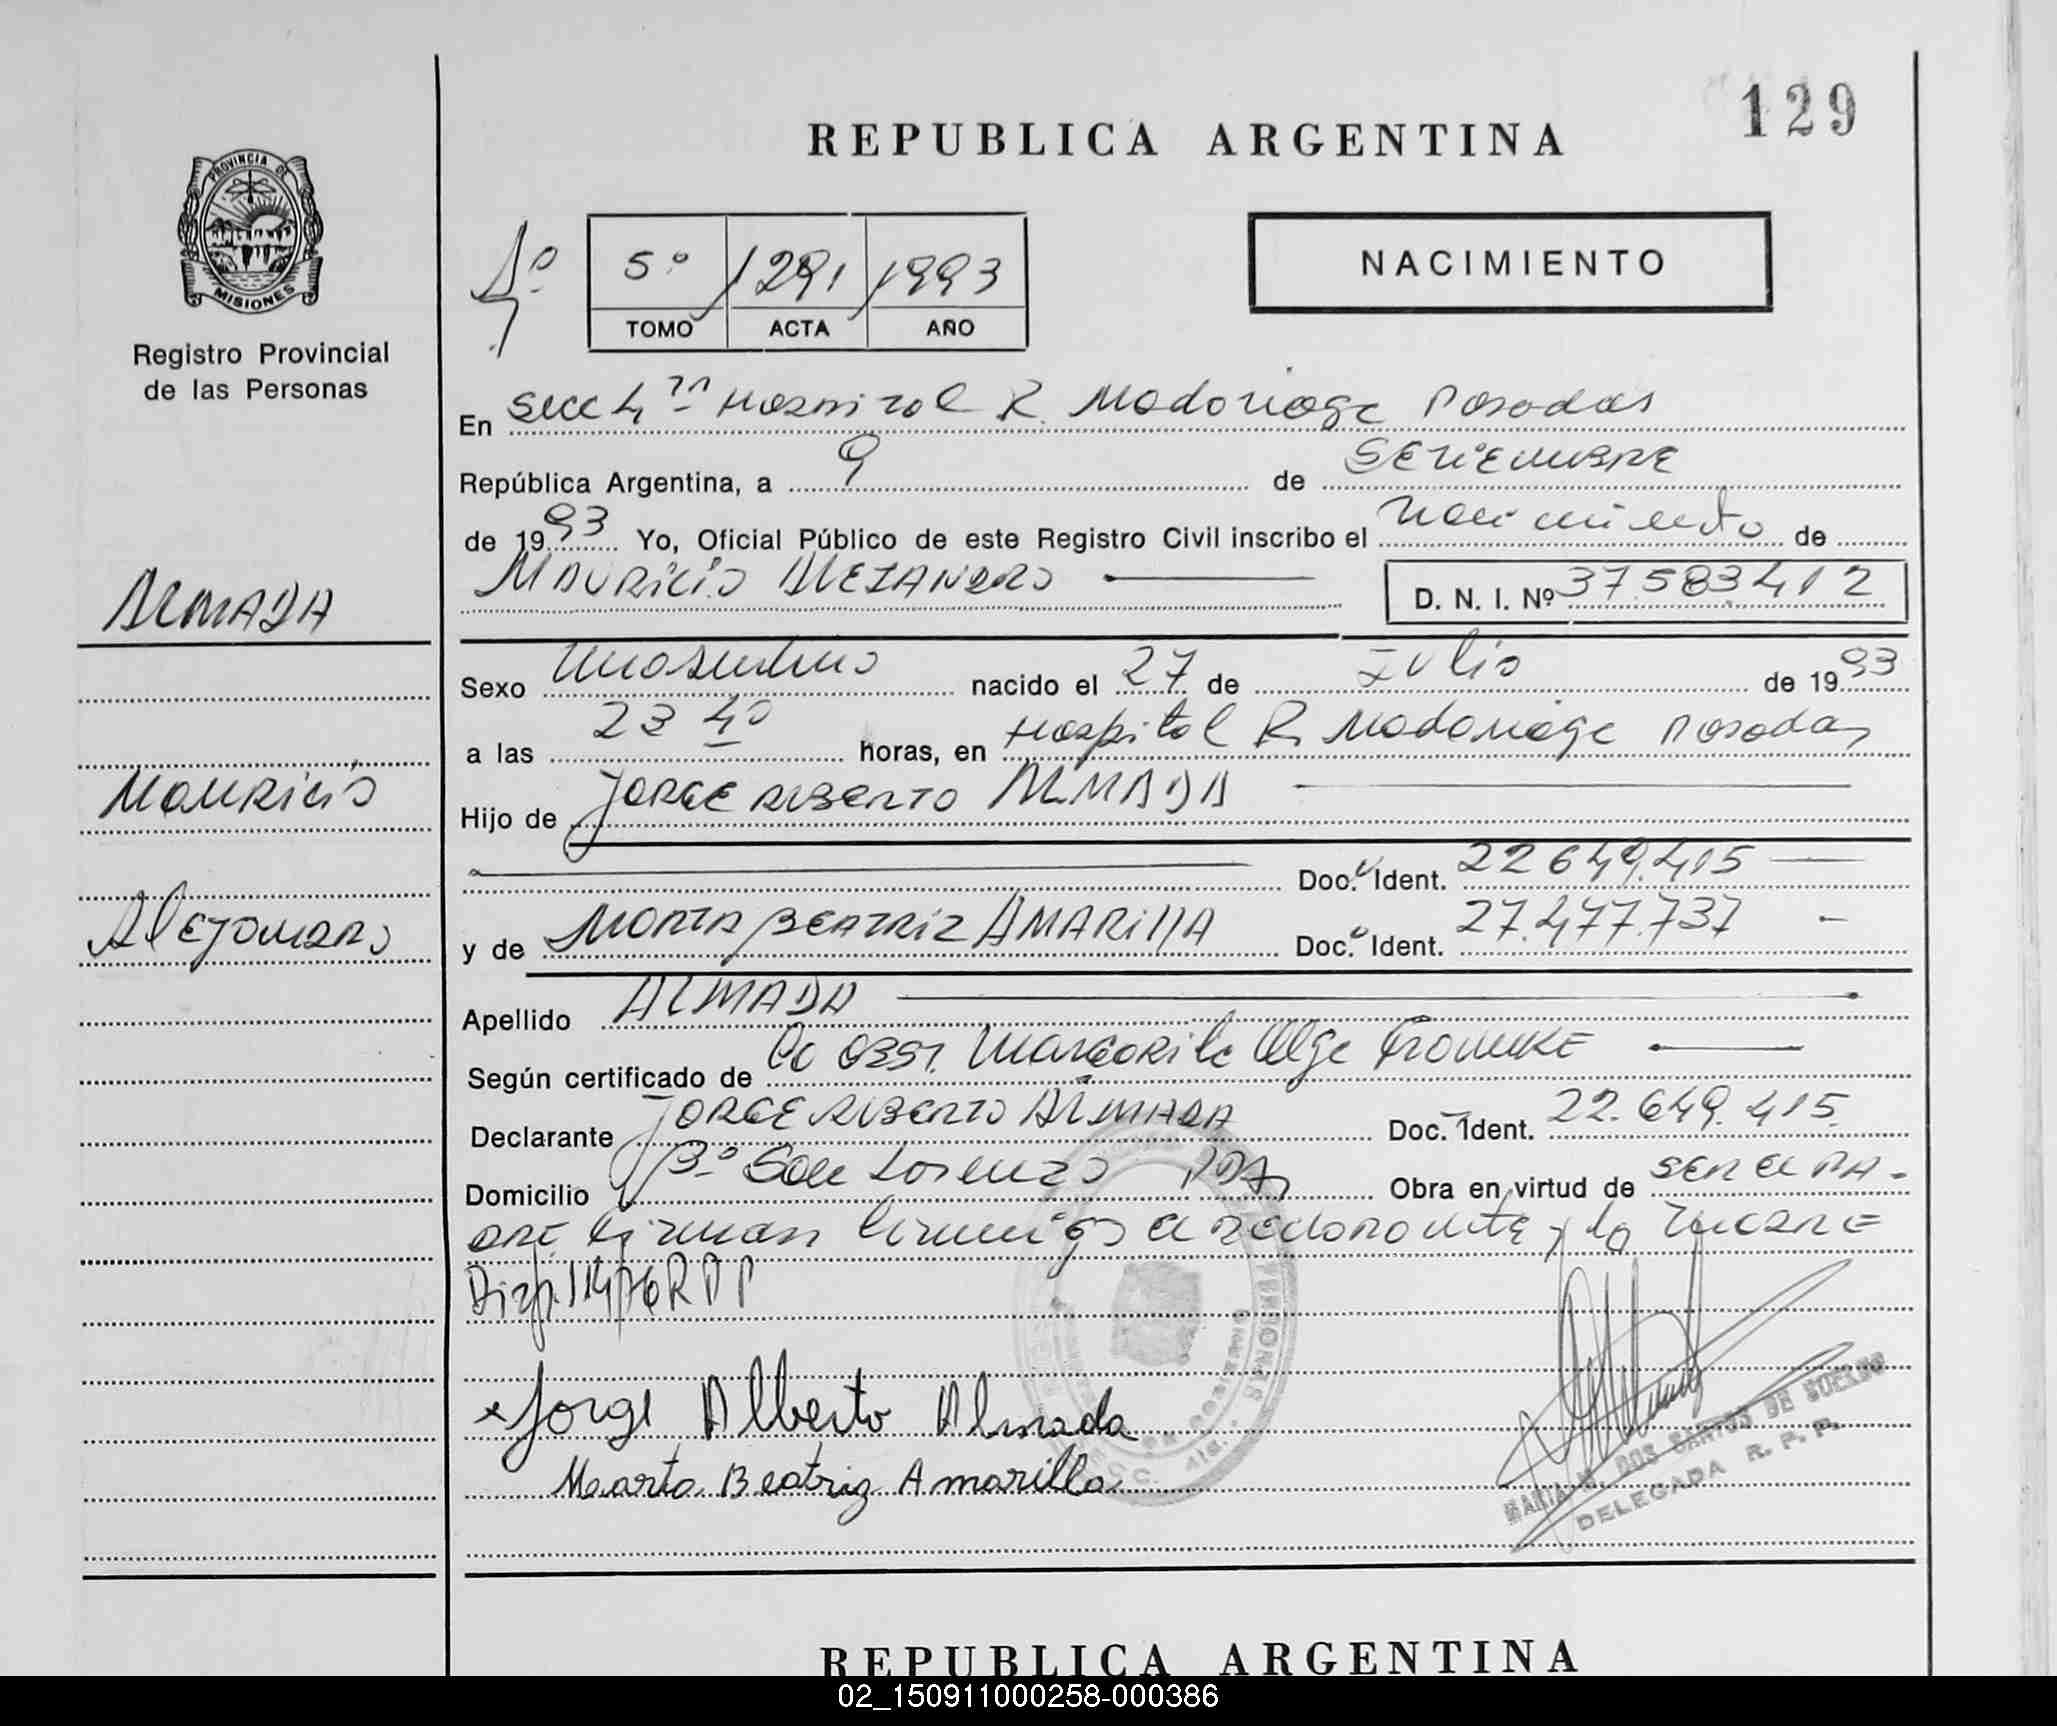 129
REPUBLICA ARGENTINA
PROVINCIA DE
MISIONES
Registro Provincial
de las Personas
NACIMIENTO
5º 1291 1993
TOMO ACTA AÑO
En Secc 4ta Hospital R. Madariaga Posadas
República Argentina, a 9 de SETIEMBRE
de 1993 Yo, Oficial Público de este Registro Civil inscribo el nacimiento de
MAURICIO ALEJANDRO D. N. I. Nº 37583412
ALMADA
Mauricio
Alejandro
Sexo masculino nacido el 27 de Julio de 1993
a las 23 40 horas, en Hospital R. Madariaga Posadas
Hijo de JORGE ALBERTO ALMADA
Doc. Ident. 22 649.415
y de MARTA BEATRIZ AMARILLA Doc. Ident. 27.477.737
Apellido ALMADA
Según certificado de Obst. Margarita Olga
Declarante JORGE ALBERTO ALMADA Doc. Ident. 22.649.415.
Domicilio Bº San Lorenzo PDAS Obra en virtud de SER EL PA-
DRE Firman conmigo el declarante y la madre
Disp. 114/76 RPP
Jorge Alberto Almada
Marta Beatriz Amarilla
MARIA M. DOS SANTOS DE SUELDO
DELEGADA R. P. P.
REPUBLICA ARGENTINA
02_150911000258-000386